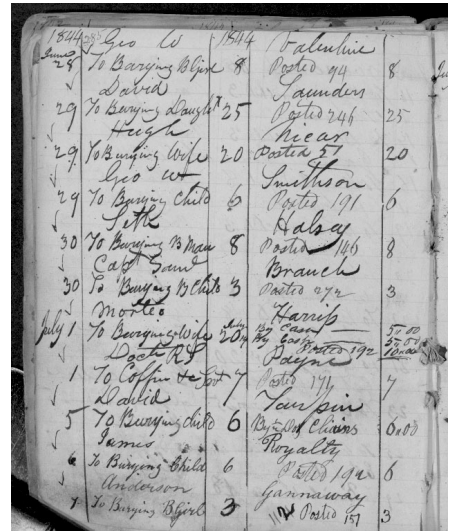 1844 Geo W 1844 Valentine
June 28 To Burying B Girl 8 Posted 94 8
David Saunders
29 To Burying Daught 25 Posted 246 25
Hugh
29 To Burying Wife 20 Posted 51 20
Geo W Smithson
29 To Burying Child 6 Posted 191 6
Seth Halsey
30 To Burying B Man 8 Posted 146 8
Capt Saml Branch
30 To Burying B Child 3 Posted 272 3
Harris
July 1 To Burying Wife 20 By Cash 5,,00
By Cash 5,,00
Posted 192 10,,00
Doctr Payne
1 To Coffin 7 Posted 7
David Turpin
5 To Burying Child 6 Chairs 6,,00
James Royalty
6 To Burying Child 6 Posted 192 6
Anderson Gannaway
7 To Burying B Girl 3 112 Posted 157 3